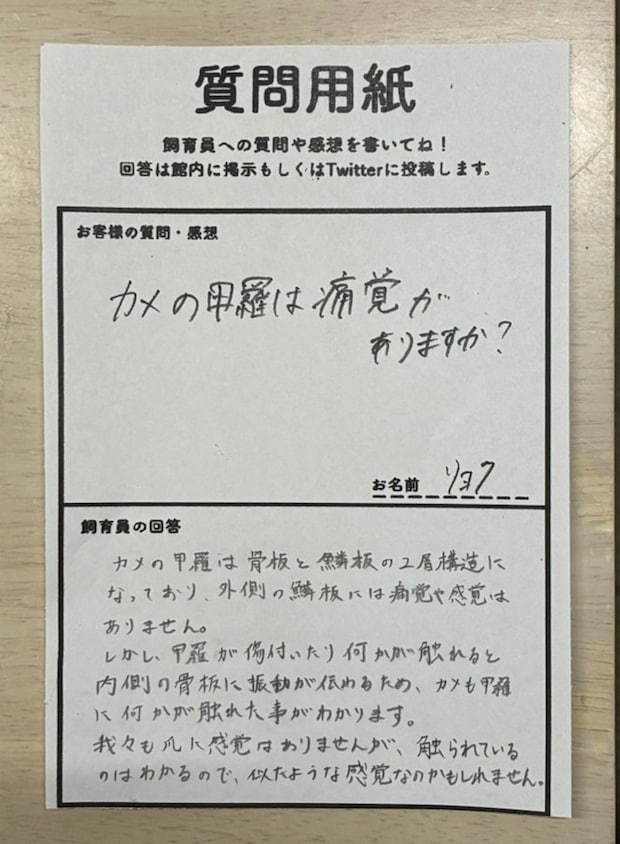 質問用紙
飼育員への質問や感想を書いてね！
回答は館内に掲示もしくはTwitterに投稿します。
お客様の質問・感想
カメの甲羅は痛覚が
ありますか？
お名前 リヨク
飼育員の回答
カメの甲羅は骨板と鱗板の2層構造に
なっており、外側の鱗板には痛覚や感覚は
ありません。
しかし、甲羅が傷付いたり何かが触れると
内側の骨板に振動が伝わるため、カメも甲羅
に何かが触れた事がわかります。
我々も爪に感覚はありませんが、触られている
のはわかるので、似たような感覚なのかもしれません。